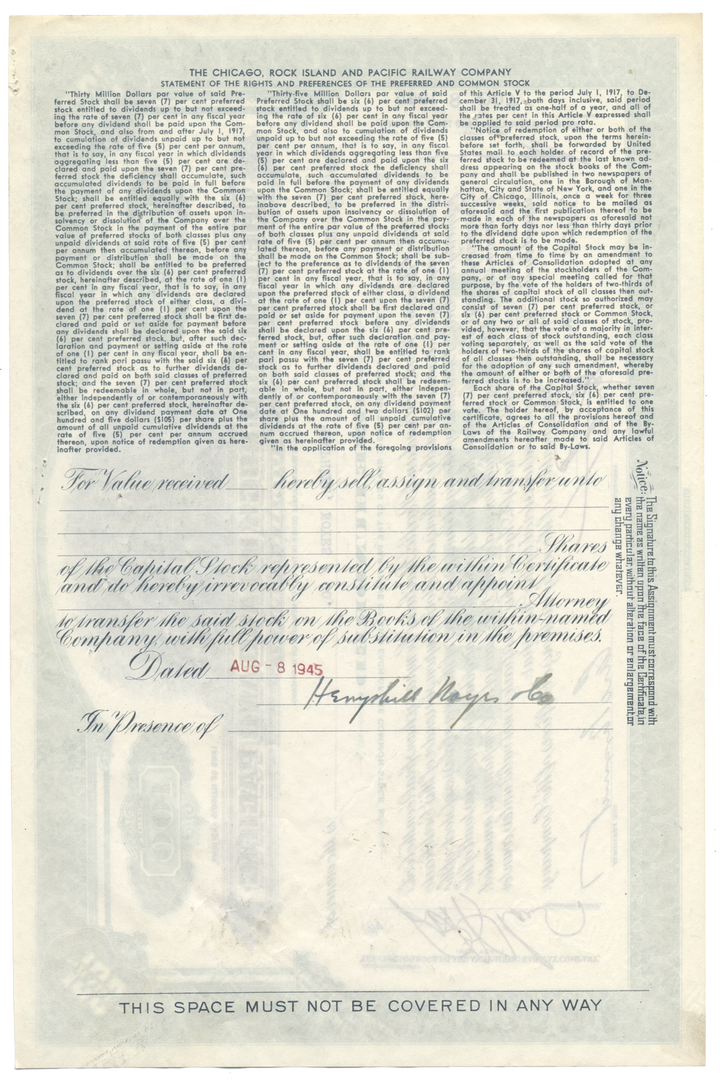 THE CHICAGO, ROCK ISLAND AND PACIFIC RAILWAY COMPANY
STATEMENT OF THE RIGHTS AND PREFERENCES OF THE PREFERRED AND COMMON STOCK
"Thirty Million Dollars par value of said Pre-
ferred Stock shall be seven (7) per cent preferred
stock entitled to dividends up to but not exceed-
ing the rate of seven (7) per cent in any fiscal year
before any dividend shall be paid upon the Com-
mon Stock, and also from and after July 1, 1917,
to cumulation of dividends unpaid up to but not
exceeding the rate of five (5) per cent per annum,
that is to say, in any fiscal year in which dividends
aggregating less than five (5) per cent are de-
clared and paid upon the seven (7) per cent pre-
ferred stock the deficiency shall accumulate, such
accumulated dividends to be paid in full before
the payment of any dividends upon the Common
Stock; shall be entitled equally with the six (6)
per cent preferred stock, hereinafter described, to
be preferred in the distribution of assets upon in-
solvency or dissolution of the Company over the
Common Stock in the payment of the entire par
value of preferred stocks of both classes plus any
unpaid dividends at said rate of five (5) per cent
per annum then accumulated thereon, before any
payment or distribution shall be made on the
Common Stock; shall be entitled to be preferred
as to dividends over the six (6) per cent preferred
stock, hereinafter described, at the rate of one (1)
per cent in any fiscal year, that is to say, in any
fiscal year in which any dividends are declared
upon the preferred stock of either class, a divi-
dend at the rate of one (1) per cent upon the
seven (7) per cent preferred stock shall be first de-
clared and paid or set aside for payment before
any dividends shall be declared upon the said six
(6) per cent preferred stock, but, after such dec-
laration and payment or setting aside at the rate
of one (1) per cent in any fiscal year, shall be en-
titled to rank pari passu with the said six (6) per
cent preferred stock as to further dividends de-
clared and paid on both said classes of preferred
stock; and the seven (7) per cent preferred stock
shall be redeemable in whole, but not in part,
either independently of or contemporaneously with
the six (6) per cent preferred stock, hereinafter de-
scribed, on any dividend payment date at One
hundred and five dollars ($105) per share plus the
amount of all unpaid cumulative dividends at the
rate of five (5) per cent per annum accrued
thereon, upon notice of redemption given as here-
inafter provided.
"Thirty-five Million Dollars par value of said
Preferred Stock shall be six (6) per cent preferred
stock entitled to dividends up to but not exceed-
ing the rate of six (6) per cent in any fiscal year
before any dividend shall be paid upon the Common
Stock, and also to cumulation of dividends
unpaid up to but not exceeding the rate of five (5)
per cent per annum, that is to say, in any fiscal
year in which dividends aggregating less than five
(5) per cent are declared and paid upon the six
(6) per cent preferred stock the deficiency shall
accumulate, such accumulated dividends to be
paid in full before the payment of any dividends
upon the Common Stock; shall be entitled equally
with the seven (7) per cent preferred stock, here-
inabove described, to be preferred in the distri-
bution of assets upon insolvency or dissolution of
the Company over the Common Stock in the pay-
ment of the entire par value of the preferred stocks
of both classes plus any unpaid dividends at said
rate of five (5) per cent per annum then accumu-
lated thereon, before any payment or distribution
shall be made on the Common Stock; shall be sub-
ject to the preference as to dividends of the seven
(7) per cent preferred stock at the rate of one (1)
per cent in any fiscal year, that is to say, in any
fiscal year in which any dividends are declared
upon the preferred stock of either class, a dividend
at the rate of one (1) per cent upon the seven (7)
per cent preferred stock shall be first declared and
paid or set aside for payment upon the seven (7)
per cent preferred stock before any dividends
shall be declared upon the six (6) per cent pre-
ferred stock, but, after such declaration and pay-
ment or setting aside at the rate of one (1) per
cent in any fiscal year, shall be entitled to rank
pari passu with the seven (7) per cent preferred
stock as to further dividends declared and paid
on both said classes of preferred stock; and the
six (6) per cent preferred stock shall be redeem-
able in whole, but not in part, either indepen-
dently of or contemporaneously with the seven (7)
per cent preferred stock, on any dividend payment
date at One hundred and two dollars ($102) per
share plus the amount of all unpaid cumulative
dividends at the rate of five (5) per cent per an-
num accrued thereon, upon notice of redemption
given as hereinafter provided.
"In the application of the foregoing provisions
of this Article V to the period July 1, 1917, to De-
cember 31, 1917, both days inclusive, said period
shall be treated as one-half of a year, and all of
the rates per cent in this Article V expressed shall
be applied to said period pro rata.
"Notice of redemption of either or both of the
classes of preferred stock, upon the terms herein-
before set forth, shall be forwarded by United
States mail to each holder of record of the pre-
ferred stock to be redeemed at the last known ad-
dress appearing on the stock books of the Com-
pany and shall be published in two newspapers of
general circulation, one in the Borough of Man-
hattan, City and State of New York, and one in the
City of Chicago, Illinois, once a week for three
successive weeks, said notice to be mailed as
aforesaid and the first publication thereof to be
made in each of the newspapers as aforesaid not
more than forty days nor less than thirty days prior
to the dividend date upon which redemption of the
preferred stock is to be made.
"The amount of the Capital Stock may be in-
creased from time to time by an amendment to
these Articles of Consolidation adopted at any
annual meeting of the stockholders of the Com-
pany, or at any special meeting called for that
purpose, by the vote of the holders of two-thirds of
the shares of capital stock of all classes then out-
standing. The additional stock so authorized may
consist of seven (7) per cent preferred stock, or
six (6) per cent preferred stock or Common Stock,
or of any two or all of said classes of stock, pro-
vided, however, that the vote of a majority in inter-
est of each class of stock outstanding, each class
voting separately, as well as the said vote of the
holders of two-thirds of the shares of capital stock
of all classes then outstanding, shall be necessary
for the adoption of any such amendment, whereby
the amount of either or both of the aforesaid pre-
ferred stocks is to be increased."
Each share of the Capital Stock, whether seven
(7) per cent preferred stock, six (6) per cent pre-
ferred stock or Common Stock, is entitled to one
vote. The holder hereof, by acceptance of this
certificate, agrees to all the provisions hereof and
of the Articles of Consolidation and of the By-
Laws of the Railway Company and any lawful
amendments hereafter made to said Articles of
Consolidation or to said By-Laws.
For Value received hereby sell, assign and transfer unto
Shares
of the Capital Stock represented by the within Certificate
and do hereby irrevocably constitute and appoint
Attorney
to transfer the said stock on the Books of the within-named
Company, with full power of substitution in the premises.
Dated AUG - 8 1945
Hemphill Noyes & Co
In Presence of
Notice: The Signature to this Assignment must correspond with
the name as written upon the face of the Certificate, in
every particular, without alteration or enlargement or
any change whatever.
THIS SPACE MUST NOT BE COVERED IN ANY WAY